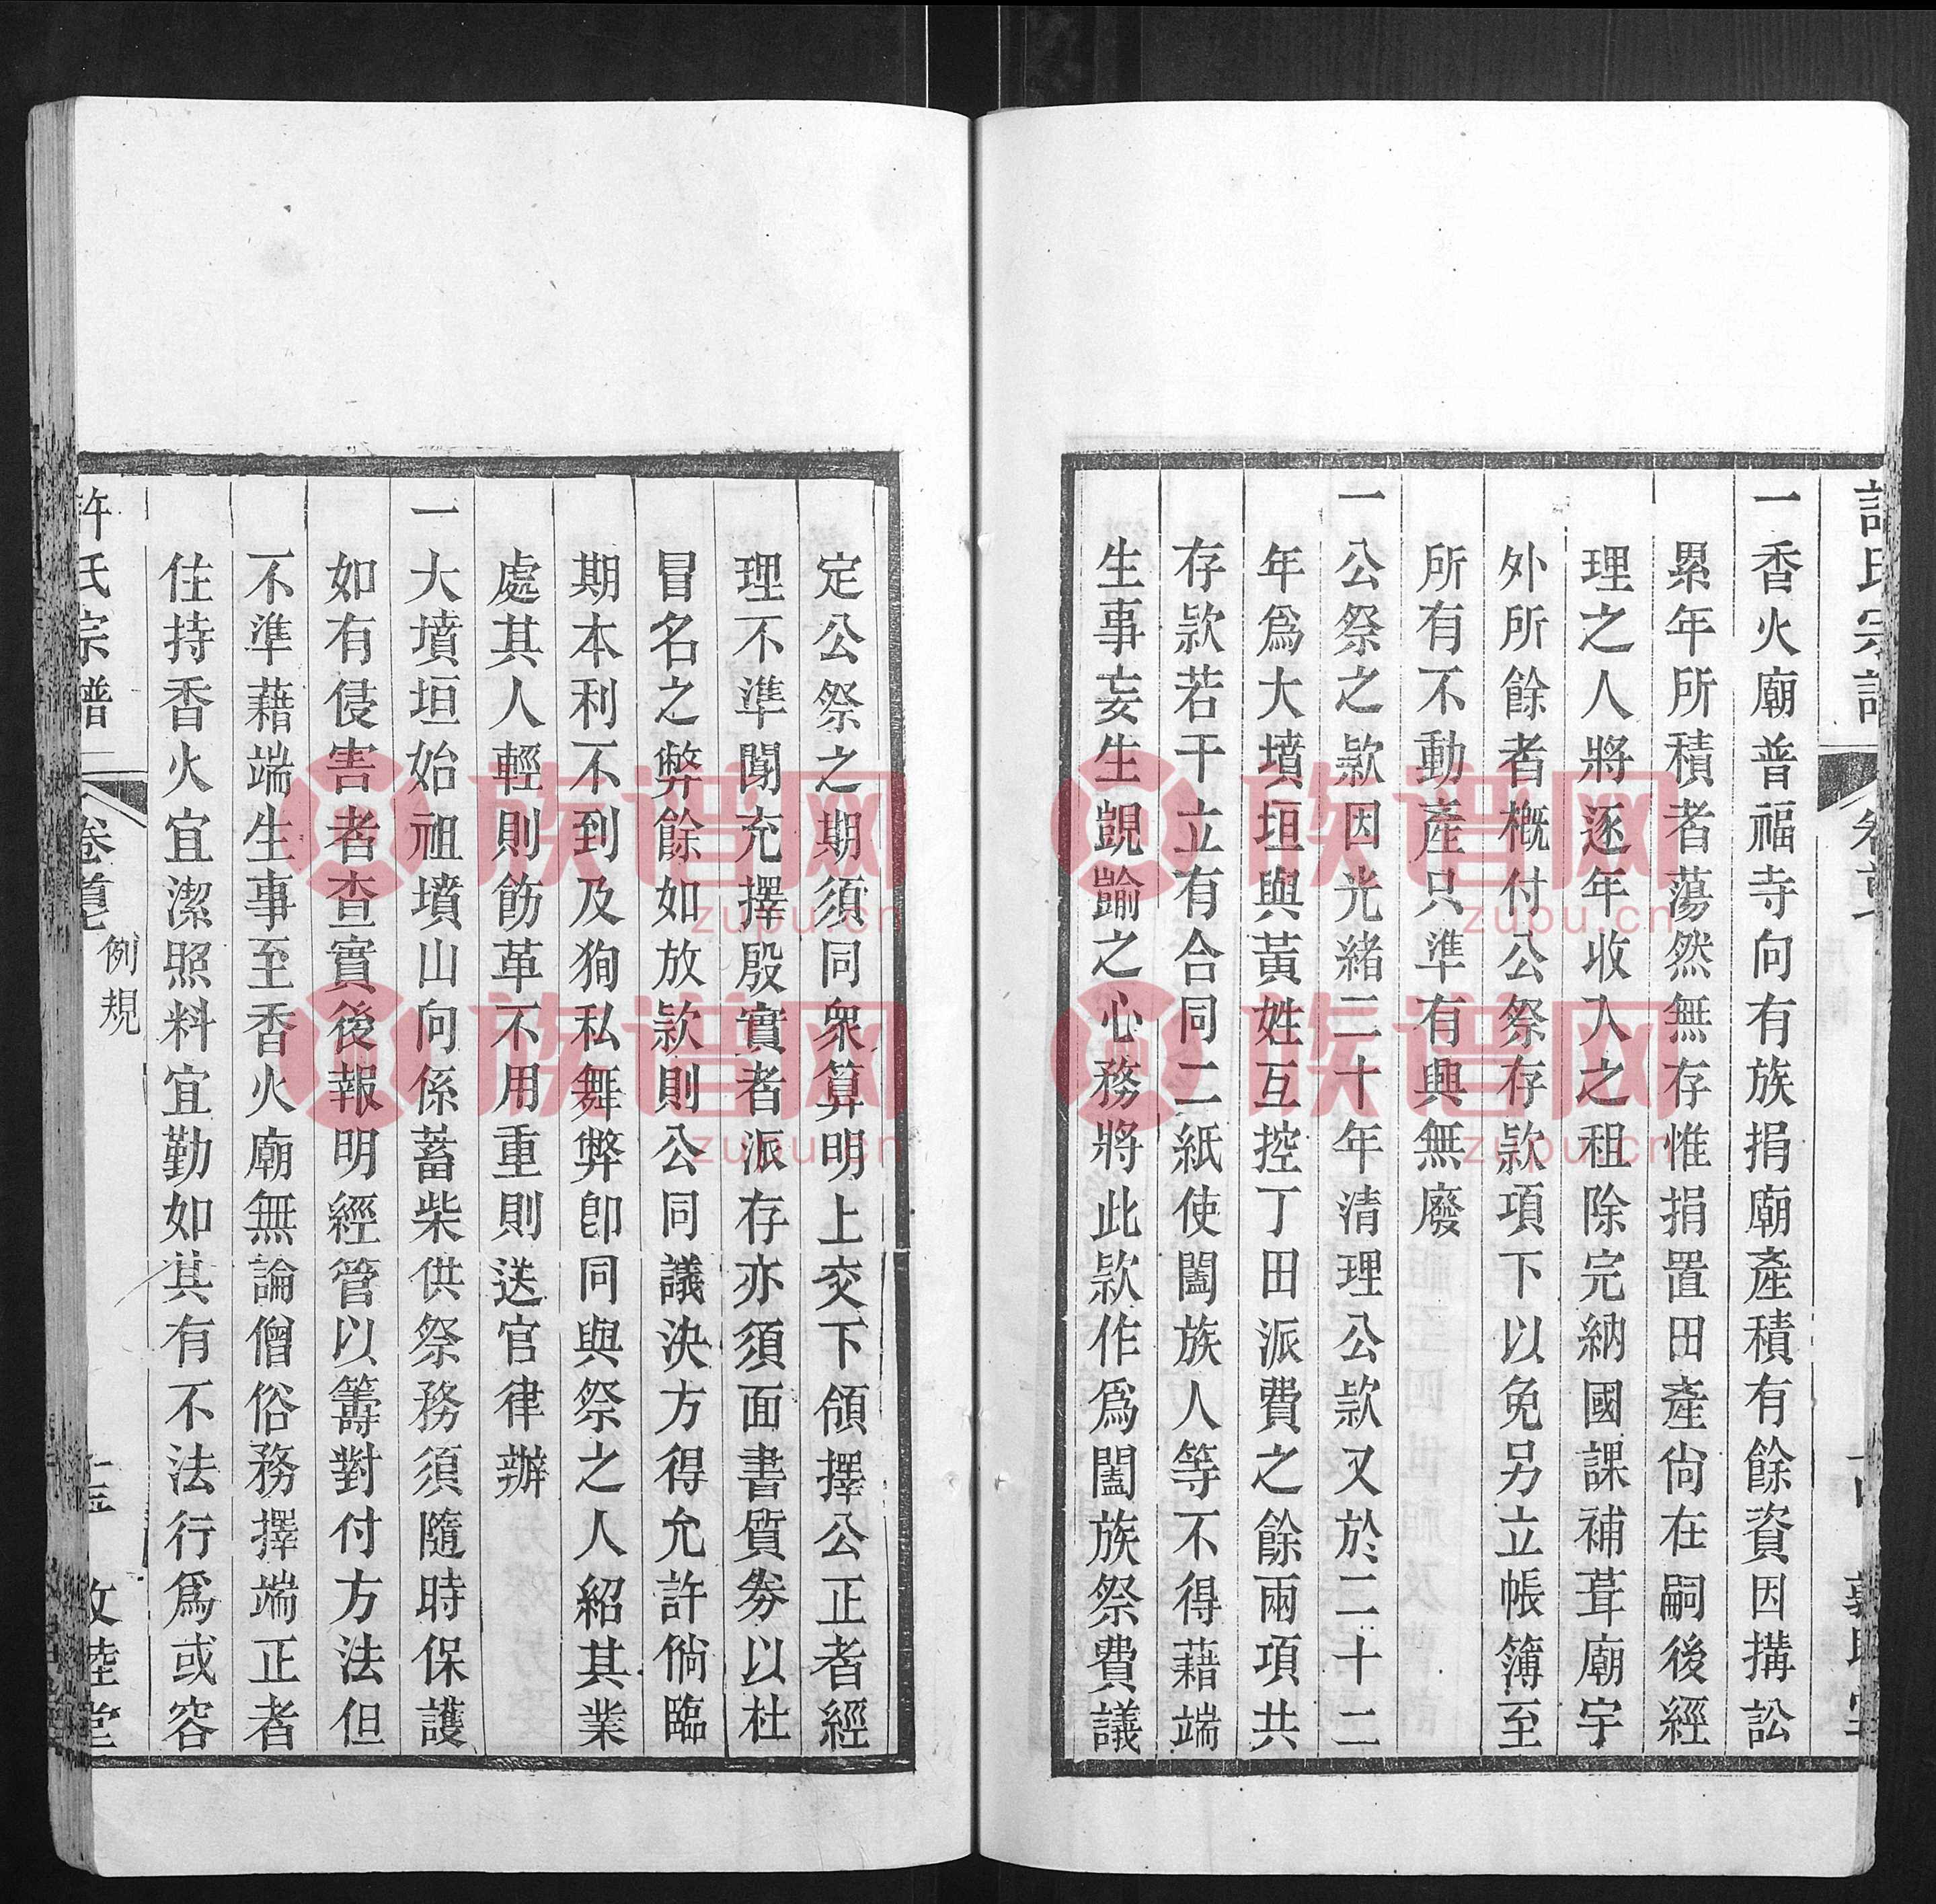 一香火廟普福寺向有族捐廟產積有餘資因搆訟
累年所積者蕩然無存惟捐置田產尙在嗣後經
理之人將逐年收入之租除完納國課補葺廟宇
外所餘者槪付公祭存款項下以免另立帳簿至
所有不動產只準有興無廢
一公祭之款因光緒二十年清理公款又於二十二
年爲大墳垣與黃姓互控丁田派費之餘兩項共
存款若干立有合同二紙使闔族人等不得藉端
生事妄生覬踰之心務將此款作爲闔族祭費議
定公祭之期須同衆算明上交下領擇公正者經
理不準闖充擇殷實者派存亦須面書質劵以杜
冒名之弊餘如放款則公同議決方得允許倘臨
期本利不到及狥私舞弊卽同與祭之人紹其業
處其人輕則飭革不用重則送官律辦
一大墳垣始祖墳山向係蓄柴供祭務須隨時保護
如有侵害者查實後報明經管以籌對付方法但
不準藉端生事至香火廟無論僧俗務擇端正者
住持香火宜潔照料宜勤如其有不法行爲或容
許氏宗譜
卷首
例規
十五
敦睦堂
族谱网
zupu.cn
族谱网
zupu.cn
族谱网
zupu.cn
族谱网
zupu.cn